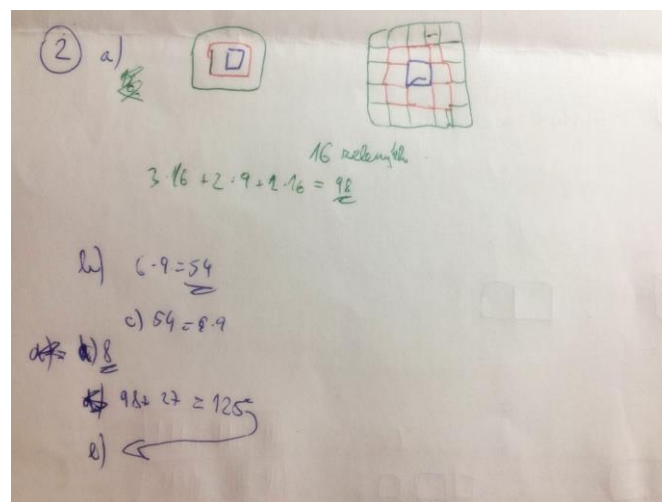 2 a)
16 zelených
3·16 + 2·9 + 1·16 = 98
b) 6·9 = 54
c) 54 = 6·9
d) 8
98 + 27 = 125
e)